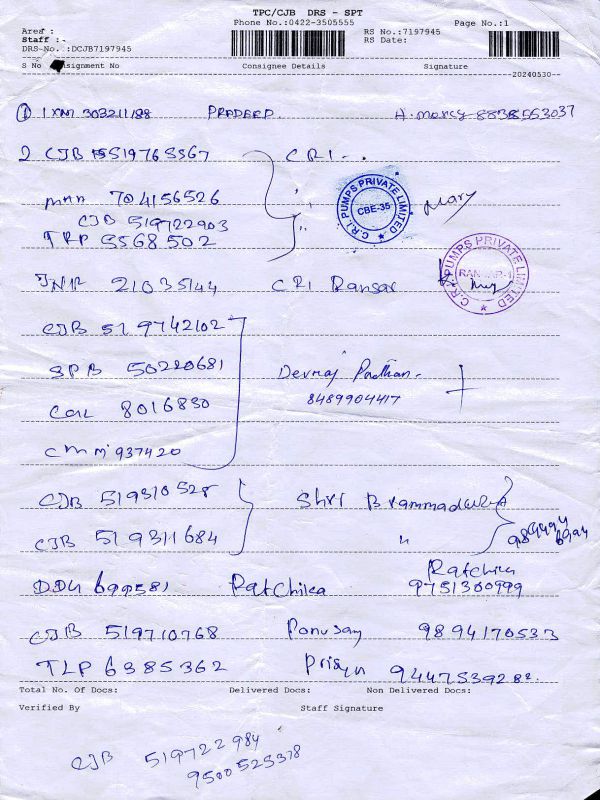 TPC/CJB DRS - SPT
Phone No.:0422-3505555 Page No.:1
Aref :
Staff :-
RS No.:7197945
RS Date:
DRS-No.:DCJB7197945
S No onsignment No Consignee Details Signature
--20240530--
① 1 303211188 PRADEEP. A. mercy 8838553037
2 CJB 519765567 CRI -.
704156526 "
CJB 519722903
TRP 5568502 "
C.R.I. PUMPS PRIVATE LIMITED
CBE-35
Mary
C.R.I. PUMPS PRIVATE LIMITED
JNR 21035144 CRI Ransar
CJB 519742102
SPB 50220681 Devraj Pradhan -
8489904417
COL 8016830
CMM 937420
CJB 519310528 Shri
CJB 519311684 "
DDU 699581 Ratchika Ratchika
9751300999
CJB 519710768 Ponusay 9894170533
TLP 6385362 9447539282.
Total No. Of Docs: Delivered Docs: Non Delivered Docs:
Verified By Staff Signature
CJB 519722984
9500525378